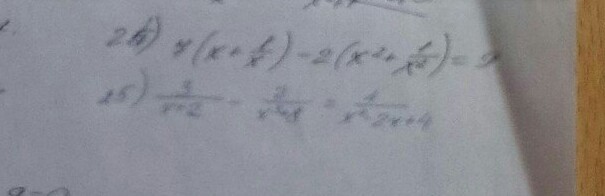 24) 7(x + 1/x) - 2(x² + 1/x²) = 9
25) 3/(x+2) - 2/(x³+8) = 1/(x²-2x+4)